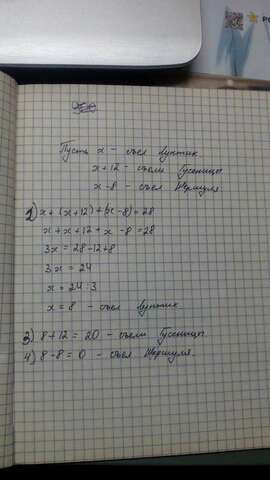 Пусть x – съел Лунтик
x + 12 – съели Гусеницы
x - 8 – съел Жермуля
1) x + (x + 12) + (x - 8) = 28
x + x + 12 + x - 8 = 28
3x = 28 - 12 + 8
3x = 24
x = 24 : 3
x = 8 – съел Лунтик
3) 8 + 12 = 20 – съели Гусеницы
4) 8 - 8 = 0 – съел Жермуля.